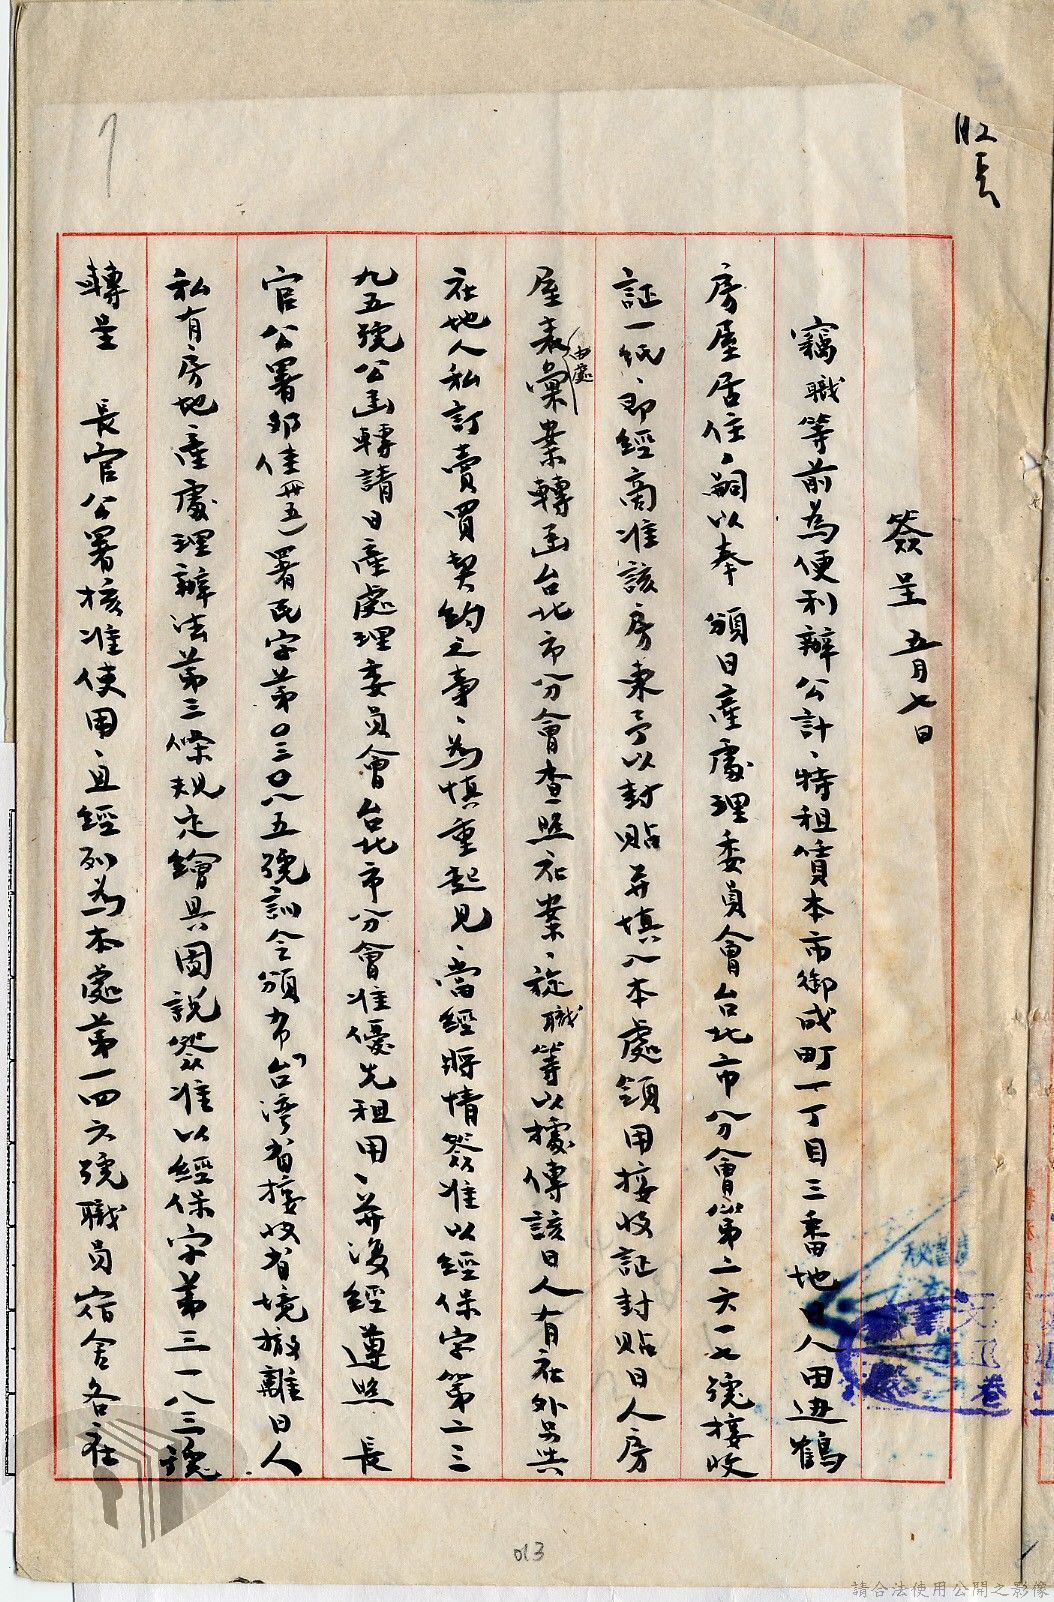 簽呈 五月七日
竊職等前為便利辦公計、特租賃本市御成町一丁目三番地日人田邊鶴
房屋居住、嗣以奉 頒日產處理委員會台北市分會第二六一七號接收
証一紙、即經商准該房東予以封貼并填入本處領用接收証封貼日人房
屋表彙案由處轉函台北市分會查照在案、旋職等以據傳該日人有在外另與
在地人私訂賣買契約之事、為慎重起見、當經將情簽准以經保字第二三
九五號公函轉請日產處理委員會台北市分會准優先租用、并復經遵照 長
官公署卯佳(卅五)署民字第0三00八五號訓令頒布「台灣省接收省境撤離日人
私有房地產處理辦法第三條規定繪具圖說簽准以經保字第三一八三號
轉呈 長官公署核准使用、且經列為本處第一四六號職員宿舍各在
013
請合法使用公開之影像